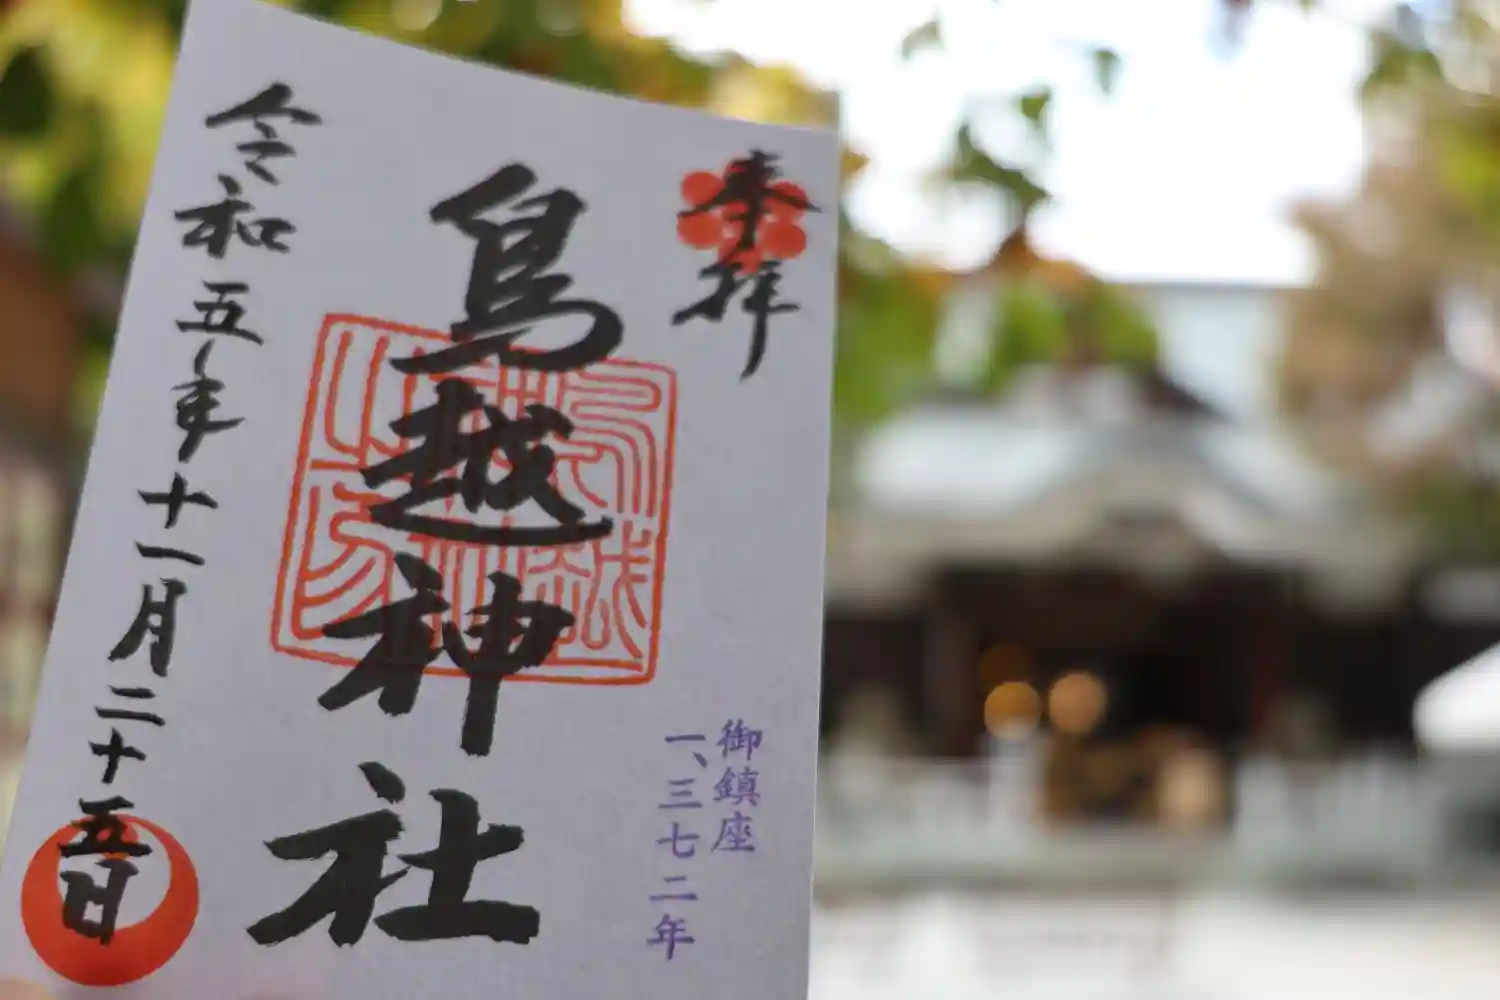 奉拝
鳥越神社
令和五年十一月二十五日
御鎮座
一、三七二年